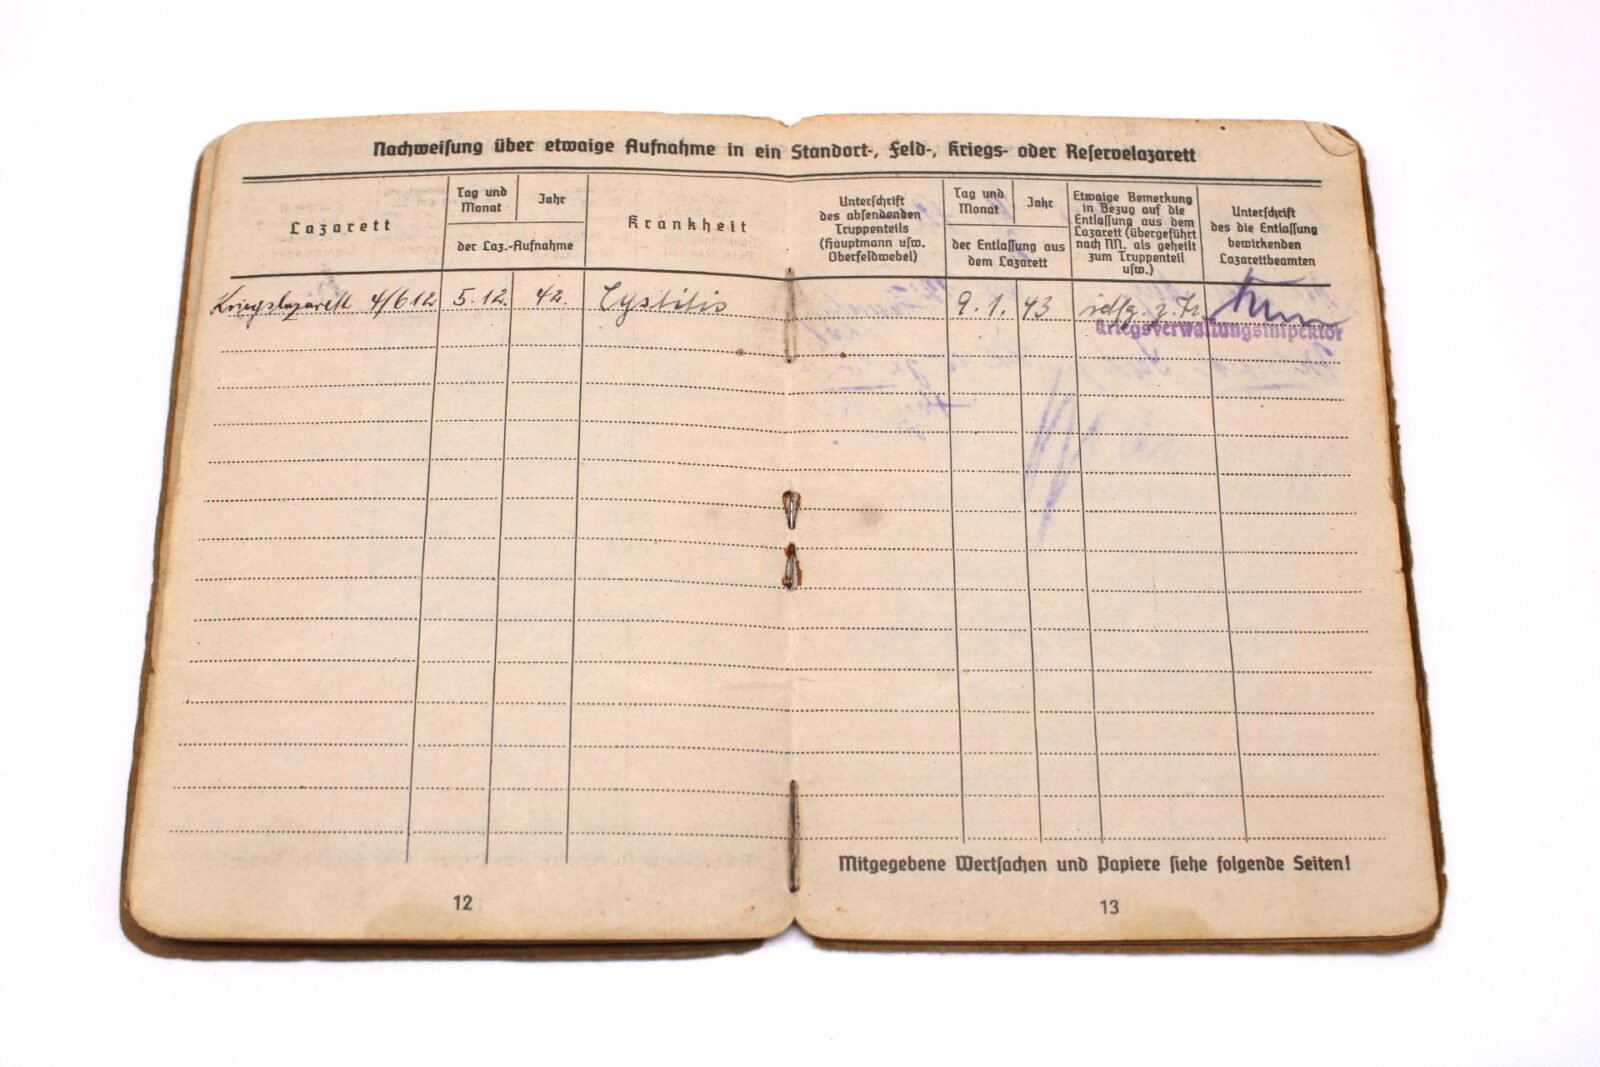 Nachweisung über etwaige Aufnahme in ein Standort-, Feld-, Kriegs- oder Reservelazarett
Lazarett
Tag und
Monat
Jahr
der Laz.-Aufnahme
Krankheit
Unterschrift
des absendenden
Truppenteils
(Hauptmann usw.
Oberfeldwebel)
Tag und
Monat
Jahr
der Entlassung aus
dem Lazarett
Etwaige Bemerkung
in Bezug auf die
Entlassung aus dem
Lazarett (übergeführt
nach NN. als geheilt
zum Truppenteil
usw.)
Unterschrift
des die Entlassung
bewirkenden
Lazarettbeamten
Kriegslazarett 4/612 5.12. 42. Cystitis 9.1. 43
Kriegsverwaltungsinspektor
Mitgegebene Wertsachen und Papiere siehe folgende Seiten!
12
13